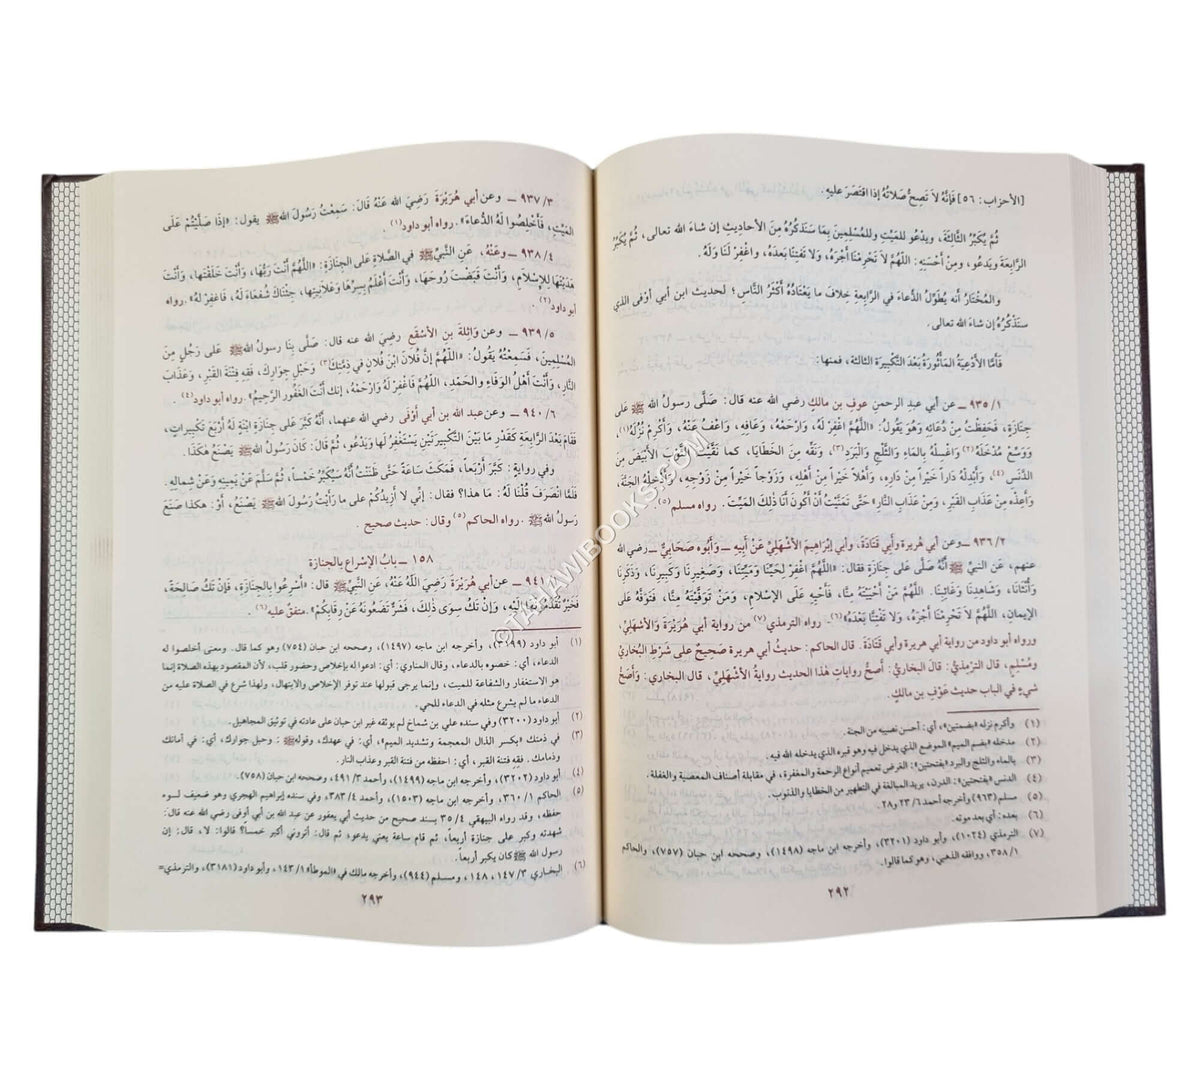 [الأحزاب: ٥٦] فَإِنَّهُ لاَ تَصِحُّ صَلاتُهُ إذا اقتَصَرَ عليهِ.
ثُمَّ يُكَبِّرُ الثَّالِثَةَ، ويدعُو للمَيِّتِ وللمُسلِمينَ بِمَا سَنَذكُرُهُ مِنَ الأحاديثِ إن شاءَ الله تعالى، ثُمَّ يُكَبِّرُ
الرَّابِعَةَ ويَدعُو، ومِنْ أحسَنِهِ: اللَّهُمَّ لاَ تَحْرِمْنَا أجْرَهُ، وَلاَ تَفتِنَّا بَعدَهُ، واغفِرْ لَنَا وَلَهُ.
وَالمُخْتَارُ أنه يُطَوِّلُ الدُّعاءَ في الرَّابِعَةِ خِلافَ ما يَعْتَادُهُ أكْثَرُ النَّاس؛ لحديثِ ابن أبي أوْفى الذي
سَنَذْكُرُهُ إن شاءَ الله تعالى.
فَأمَّا الأدْعِيَةُ المَأثُورَةُ بَعْدَ التَّكبِيرَةِ الثالثة، فمنها:
٩٣٥/١ ــ عن أبي عبدِ الرحمنِ عوفِ بن مالكٍ رضي الله عنه قال: صَلَّى رسولُ الله ﷺ عَلى
جنازَةٍ، فَحَفِظْتُ مِنْ دُعَائِهِ وَهُوَ يَقُولُ: «اللَّهُمَّ اغْفِرْ لَهُ، وَارْحَمْهُ، وَعَافِهِ، وَاعْفُ عَنْهُ، وَأكْرِمْ نُزُلَهُ(١)،
وَوَسِّعْ مُدْخَلَهُ(٢) وَاغْسِلْهُ بِالمَاءِ وَالثَّلْجِ وَالْبَرَدِ(٣)، وَنَقِّهِ مِنَ الخَطَايَا، كما نَقَّيْتَ الثَّوْبَ الأبْيَضَ مِنَ
الدَّنَسِ(٤)، وَأبْدِلْهُ دَاراً خَيْراً مِنْ دَارِهِ، وَأهْلاً خَيْراً مِنْ أهْلِهِ، وَزَوْجاً خَيْراً مِنْ زَوْجِهِ، وَأدْخِلْهُ الجَنَّةَ،
وَأعِذْهُ مِنْ عَذَابِ القَبْرِ، وَمِنْ عَذَابِ النَّارِ» حَتَّى تَمَنَّيْتُ أنْ أكُونَ أنَا ذلِكَ المَيِّتَ. رواه مسلم(٥)
٩٣٦/٢ ــ وعن أبي هريرة وأبي قَتَادَةَ، وأبي إبْرَاهيمَ الأشْهَلِيِّ عَنْ أبيهِ ــ وَأبُوهُ صَحَابِيٌّ ــ رضي الله
عنهم، عَنِ النبيِّ ﷺ أنَّهُ صَلَّى عَلَى جَنَازَةٍ فقال: «اللَّهُمَّ اغْفِرْ لِحَيِّنَا وَمَيِّتِنَا، وَصَغِيرِنَا وَكَبِيرِنَا، وَذَكَرِنَا
وَأُنْثَانَا، وشَاهِدِنَا وَغَائِبِنَا. اللَّهُمَّ مَنْ أحْيَيْتَهُ مِنَّا، فَأحْيِهِ عَلَى الإسْلامِ، وَمَنْ تَوَفَّيْتَهُ مِنَّا، فَتَوَفَّهُ عَلى
الإيمَانِ، اللَّهُمَّ لاَ تَحْرِمْنَا أجْرَهُ، وَلاَ تَفْتِنَّا بَعْدَهُ»(٦). رواه الترمذي(٧) من رواية أبي هُرَيْرَةَ وَالأشْهَلِيِّ،
ورواه أبو داود من رواية أبي هريرة وأبي قَتَادَةَ. قال الحاكم: حديثُ أبي هريرة صَحِيحٌ على شَرْطِ البُخَاريِّ
ومُسْلِمٍ، قال التِّرمِذيُّ: قالَ البخاريُّ: أصَحُّ رواياتِ هذا الحديث روايةُ الأشْهَلِيِّ، قال البخاري: وَأصَحُّ
شَيءٍ في الباب حديث عَوْفِ بن مالكٍ.
(١) وأكرم نزله «بضمتين»، أي: أحسن نصيبه من الجنة.
(٢) مدخله «بضم الميم» الموضع الذي يدخل فيه وهو قبره الذي يدخله الله فيه.
(٣) بالماء والثلج والبرد «بفتحتين»: الغرض تعميم أنواع الرحمة والمغفرة، في مقابلة أصناف المعصية والغفلة.
(٤) الدنس «بفتحتين»: الدرن، يريد المبالغة في التطهير من الخطايا والذنوب.
(٥) مسلم (٩٦٣) وأخرجه أحمد ٢٣/٦ و٢٨.
(٦) بعده: أي بعد موته.
(٧) الترمذي (١٠٢٤)، وأبو داود (٣٢٠١)، وأخرجه ابن ماجه (١٤٩٨)، وصححه ابن حبان (٧٥٧)، والحاكم
٣٥٨/١، ووافقه الذهبي، وهو كما قالوا.
٢٩٢
٩٣٧/٣ ــ وعن أبي هُرَيْرَةَ رَضِيَ الله عَنْهُ قَالَ: سَمِعْتُ رَسُولَ اللهِ ﷺ يقول: «إذَا صَلَّيْتُمْ عَلَى
المَيِّتِ، فَأخْلِصُوا لَهُ الدُّعَاءَ». رواه أبو داود(١)
٩٣٨/٤ ــ وعَنْهُ، عَنِ النَّبيِّ ﷺ في الصَّلاةِ عَلَى الجَنَازَةِ: «اللَّهُمَّ أنْتَ رَبُّهَا، وَأنْتَ خَلَقْتَهَا، وَأنْتَ
هَدَيْتَهَا لِلإسْلاَمِ، وَأنْتَ قَبَضْتَ رُوحَهَا، وَأنْتَ أعْلَمُ بِسِرِّهَا وَعَلاَنِيَتِهَا، جِئْنَاكَ شُفَعَاءَ لَهُ، فَاغْفِرْ لَهُ». رواه
أبو داود(٢)
٩٣٩/٥ ــ وعن وَاثِلَةَ بنِ الأسْقَعِ رضيَ الله عنه قال: صَلَّى بِنَا رسولُ اللهِ ﷺ عَلى رَجُلٍ مِنَ
المُسْلِمِينَ، فَسَمعْتُهُ يَقُولُ: «اللَّهُمَّ إنَّ فُلاَنَ ابْنَ فُلانٍ في ذِمَّتِكَ(٣) وَحَبْلِ جِوَارِكَ، فَقِهِ فِتْنَةَ القَبْرِ، وَعَذَابَ
النَّارِ، وَأنْتَ أهْلُ الوَفَاءِ وَالحَمْدِ، اللَّهُمَّ فَاغْفِرْ لَهُ وَارْحَمْهُ، إنك أنْتَ الغَفُورُ الرَّحِيمُ». رواه أبو داود(٤).
٩٤٠/٦ ــ وعن عبد الله بن أبي أوْفَى رضي الله عنهما، أنَّهُ كَبَّرَ عَلَى جَنَازَةِ ابْنَةٍ لَهُ أرْبَعَ تَكْبِيرَاتٍ،
فَقَامَ بَعْدَ الرَّابِعَةِ كَقَدْرِ مَا بَيْنَ التَّكْبِيرَتَيْنِ يَسْتَغْفِرُ لَهَا وَيَدْعُو، ثُمَّ قَالَ: كَانَ رَسُولُ اللهِ ﷺ يَصْنَعُ هكَذَا.
وفي روايةٍ: كَبَّرَ أرْبَعاً، فَمَكَثَ سَاعَةً حَتَّى ظَنَنْتُ أنَّهُ سَيُكَبِّرُ خَمْساً، ثُمَّ سَلَّمَ عَنْ يَمِينِهِ وَعَنْ شِمَالِهِ.
فَلَمَّا انْصَرَفَ قُلْنَا لَهُ: مَا هذَا؟ فقال: إنِّي لا أزيدُكُمْ على ما رَأيْتُ رسُولَ اللهِ ﷺ يَصْنَعُ، أوْ: هكذا صَنَعَ
رَسُولُ اللهِ ﷺ. رواه الحاكم(٥) وقال: حديث صحيح.
١٥٨ ــ بابُ الإسْراعِ بالجَنازة
٩٤١ ــ عن أبي هُرَيْرَةَ رَضِيَ اللَّهُ عَنْهُ، عَنِ النَّبيِّ ﷺ قال: «أسْرِعُوا بِالجَنَازَةِ، فَإنْ تَكُ صَالِحَةً،
فَخَيْرٌ تُقَدِّمُونَهَا إلَيْهِ، وَإنْ تَكُ سِوَى ذلِكَ، فَشَرٌّ تَضَعُونَهُ عَنْ رِقَابِكُمْ». متفقٌ عليه(٦).
(١) أبو داود (٣١٩٩)، وأخرجه ابن ماجه (١٤٩٧)، وصححه ابن حبان (٧٥٤) وهو كما قال. ومعنى أخلصوا له
الدعاء، أي: خصوه بالدعاء، وقال المناوي: أي: ادعوا له بإخلاص وحضور قلب، لأن المقصود بهذه الصلاة إنما
هو الاستغفار والشفاعة للميت، وإنما يرجى قبولها عند توفر الإخلاص والابتهال، ولهذا شرع في الصلاة عليه من
الدعاء ما لم يشرع مثله في الدعاء للحي.
(٢) أبو داود (٣٢٠٠) وفي سنده علي بن شماخ لم يوثقه غير ابن حبان على عادته في توثيق المجاهيل.
(٣) في ذمتك «بكسر الذال المعجمة وتشديد الميم»، أي: في عهدك، وقوله ﷺ: وحبل جوارك، أي: في أمانك
وذمامك. فقِهِ فتنة القبر، أي: احفظه من فتنة القبر وعذاب النار.
(٤) أبو داود (٣٢٠٢)، وأخرجه ابن ماجه (١٤٩٩)، وأحمد ٤٩١/٣، وصححه ابن حبان (٧٥٨).
(٥) الحاكم ٣٦٠/١، وأخرجه ابن ماجه (١٥٠٣)، وأحمد ٣٨٣/٤، وفي سنده إبراهيم الهجري وهو ضعيف لسوء
حفظه، وقد رواه البيهقي ٣٥/٤ بسند صحيح من حديث أبي يعفور عن عبد الله بن أبي أوفى رضي الله عنه قال:
شهدته وكبر على جنازة أربعاً، ثم قام ساعة يعني يدعو، ثم قال: أتروني أكبر خمساً؟ قالوا: لا، قال: إن
رسول الله ﷺ كان يكبر أربعاً.
(٦) البخاري ١٤٧/٣، ١٤٨، ومسلم (٩٤٤)، وأخرجه مالك في «الموطأ» ١٤٣/١، وأبو داود (٣١٨١)، والترمذي=
٢٩٣
©TAHAWIBOOKS.COM